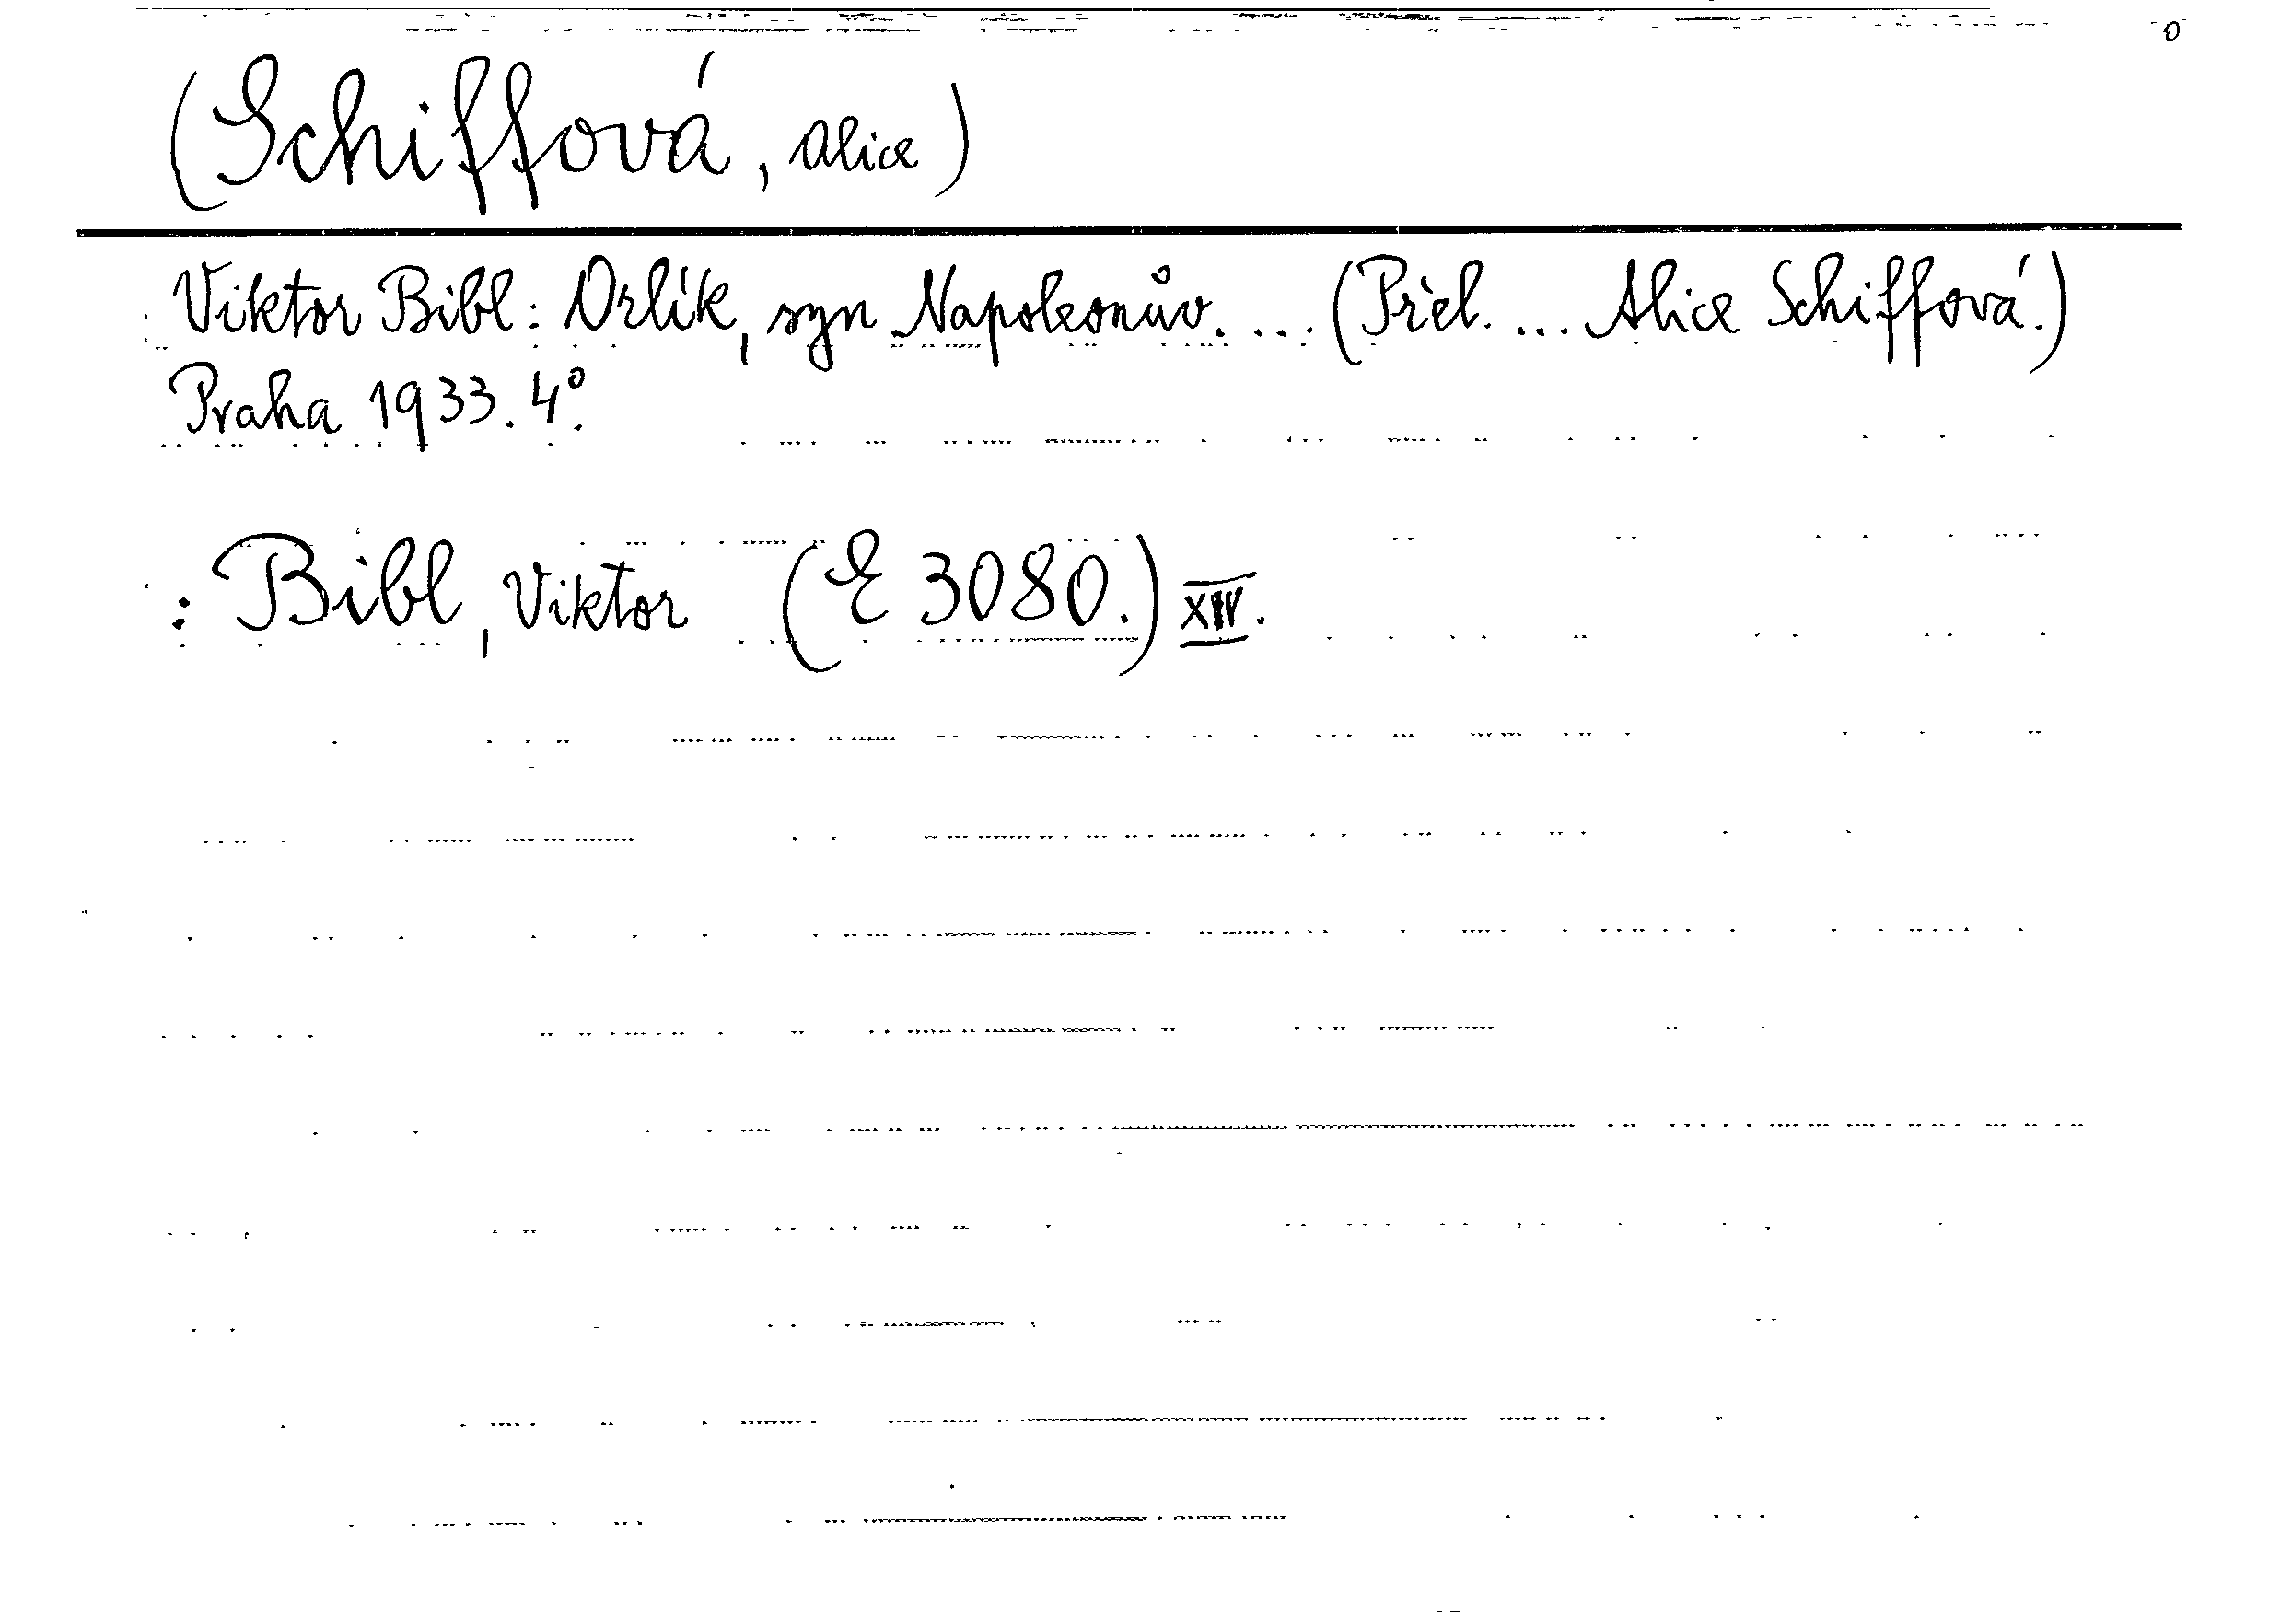 (Schiffová, Alice)
Viktor Bibl: Orlík, syn Napoleonův. ... (Přel. ... Alice Schiffová.)
Praha 1933. 4°.
: Bibl, Viktor (E 3080.) XIV.